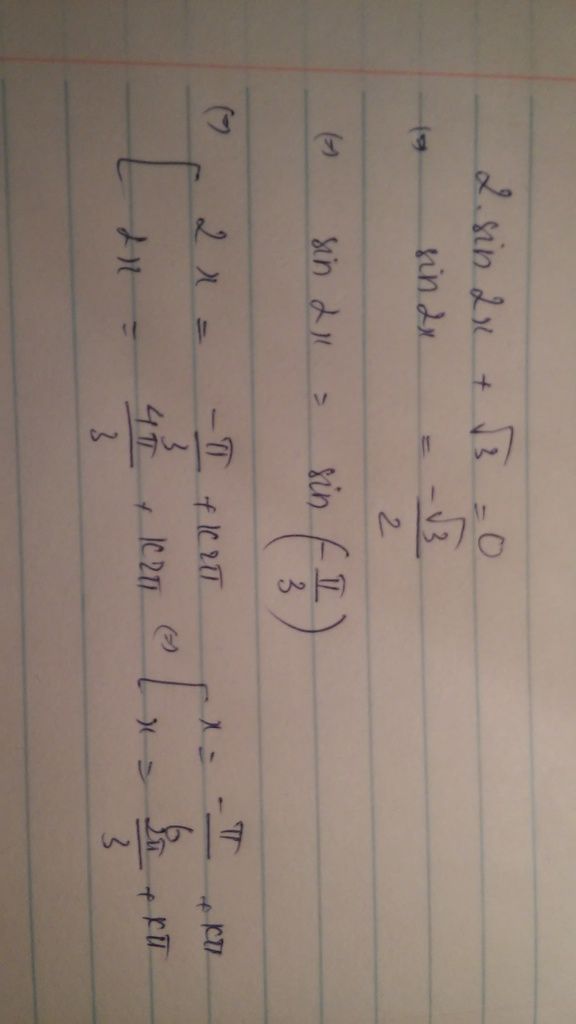 2.sin 2x + √3 = 0
(=) sin 2x = -√3/2
(=) sin 2x = sin (-π/3)
(=) [ 2x = -π/3 + k2π
[ 2x = 4π/3 + k2π (=) [ x = -π/6 + kπ
[ x = 2π/3 + kπ